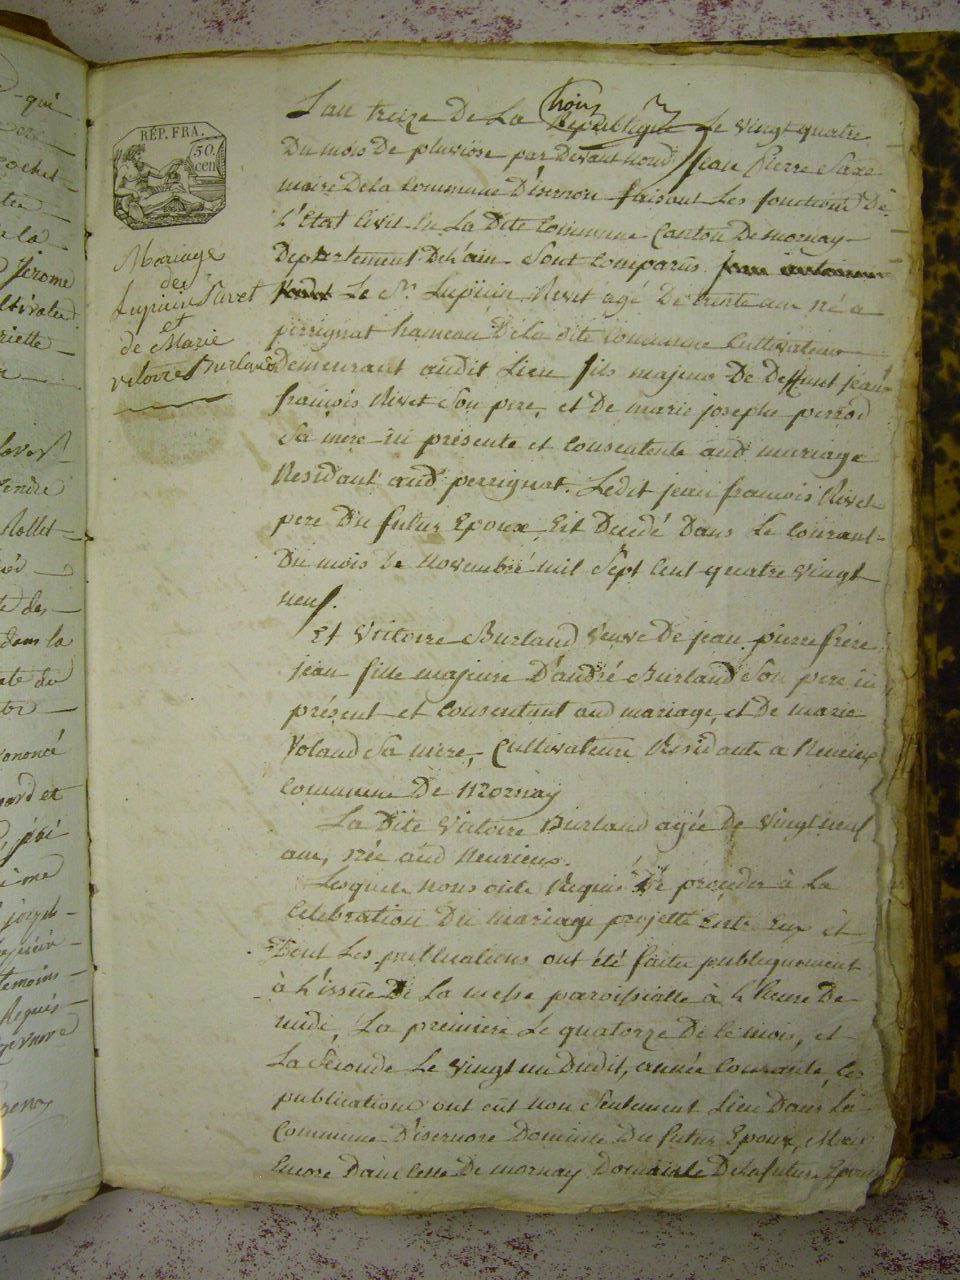 qui
Jerome
cultivateur
Rollet
dans la
prononcé
témoins
Requis
RÉP. FRA.
50. cen
Mariage
de
Lupicin Rivet
et
de Marie
victoire Burland
trois
L'an treize De La République Le vingt quatre
Du mois De pluviose par Devant nous Jean Pierre
maire De la Commune D'isernore faisant Les fonctions De
L'Etat Civil en La Dite Commune Canton De mornay
Departement De L'ain Sont Comparus
Le Sr. Lupicin Rivet agé De trente ans né a
perrignat hameau De la dite Commune Cultivateur
Demeurant audit Lieu fils majeur De Deffunt jean
françois Rivet Son pere, et De marie josephe perrod
Sa mere ici présente et Consentente aud mariage
Résidant aud perrignat. Ledit jean francois Rivet
pere Du futur Epoux Est Decedé Dans Le Courant
Du mois De Novembre mil Sept Cent quatre vingt
neuf.
Et Victoire Burland Veuve De jean pierre frére
jean fille majeure D'andré Burland Son pere ici
présent et Consentant aud mariage, et De marie
Voland Sa mere, Cultivateurs Résidants a
Commune De Mornay
La Dite Victoire Burland agée De Vingt neuf
ans, née aud
Lesquels nous ont Requis De proceder à La
Célébration Du mariage projetté Entre Eux et
Dont Les publications ont été faites publiquement
à L'issüe De La messe paroissialle à L'heure De
midi, La premiere Le quatorze De Ce mois, et
La Seconde Le vingt un Dudit, année Courante, Ces
publications ont eut non Seulement Lieu Dans La
Commune D'isernore Domicile Du futur Epoux, Mais
Encore Dans Celle De mornay Domicile De La future Epouse